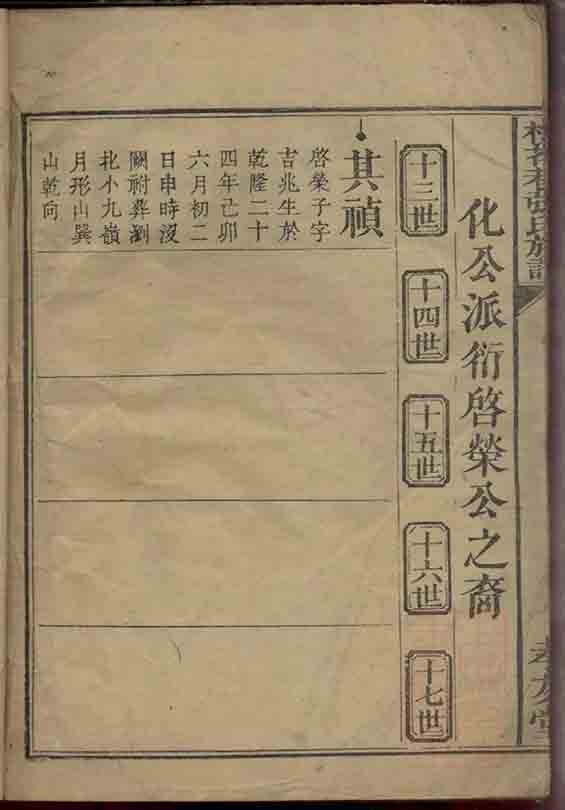 張氏族譜
孝友堂
化公派衍啓榮公之裔
十三世
十四世
十五世
十六世
十七世
其禎
啓榮子字
吉兆生於
乾隆二十
四年己卯
六月初二
日申時沒
闕祔葬瀏
北小九嶺
月形山巽
山乾向